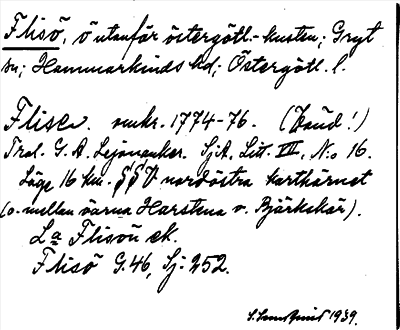 Flisö, ö utanför östergötl.-kusten; Gryt
sn; Hammarkinds hd; Östergötl. l.
Flise. omkr. 1774-76. (Land!)
Tral. G. A. Lejonanker. SjA. Litt. VII, N:o 16.
Läge 16 km. nordöstra hörnet
(o. mellan öarna Harstena o. Björkskär).
La Flisön ek.
Flisö G. 46, Sj: 252.
1939.